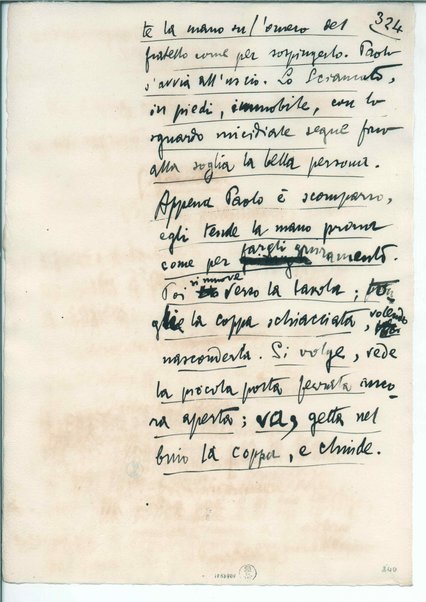 324
te la mano su l'omero del
fratello come per sospingerlo. Paolo
s'avvia all'uscio. Lo Sciancato,
in piedi, immobile, con lo
sguardo micidiale segue fino
alla soglia la bella persona.
Appena Paolo è scomparso,
egli tende la mano prona
come per fargli giuramento.
Poi si muove verso la tavola;
glie la coppa schiacciata, volendo
nasconderla. Si volge, vede
la piccola porta ferrata anco-
ra aperta; va, getta nel
buio la coppa, e chiude.
240